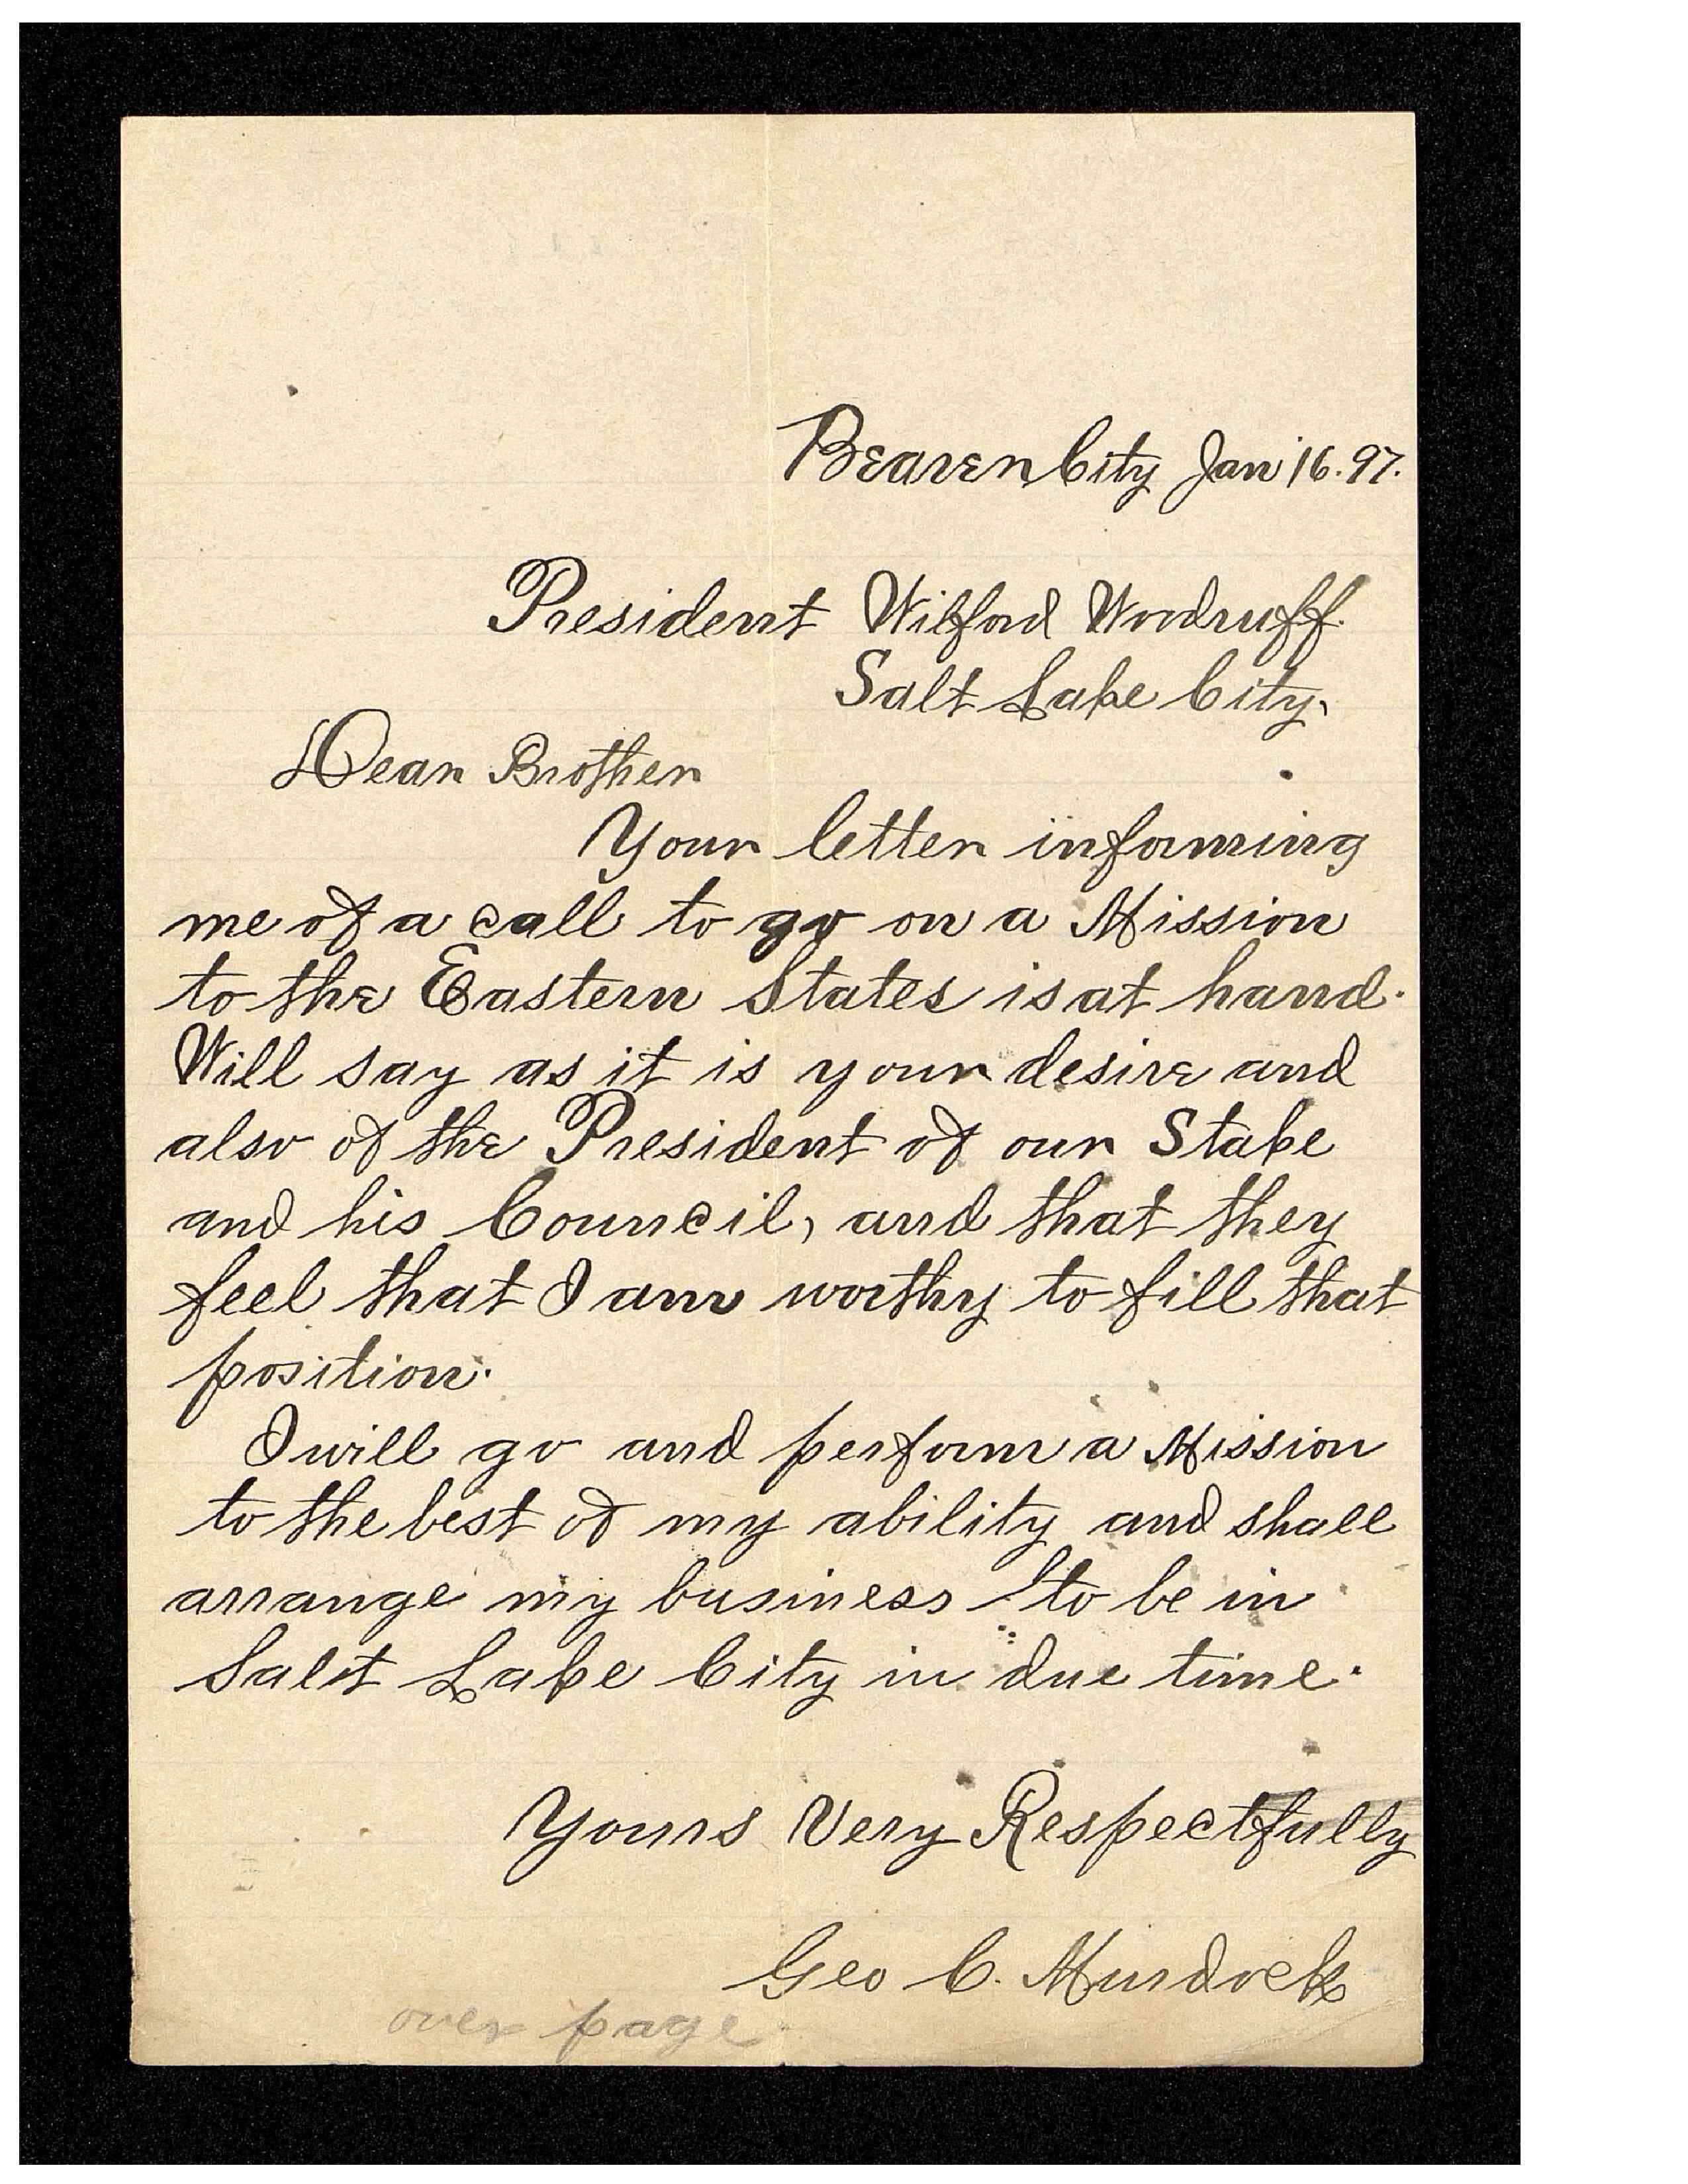 Beaver City Jan 16. 97.
President Wilford Woodruff.
Salt Lake City.
Dear Brother
Your letter informing
me of a call to go on a Mission
to the Eastern States is at hand.
Will say as it is your desire and
also of the President of our Stake
and his Council, and that they
feel that I am worthy to fill that
position.
I will go and perform a Mission
to the best of my ability and shall
arrange my business to be in
Salt Lake City in due time.
Yours Very Respectfully
Geo C. Murdock
over page